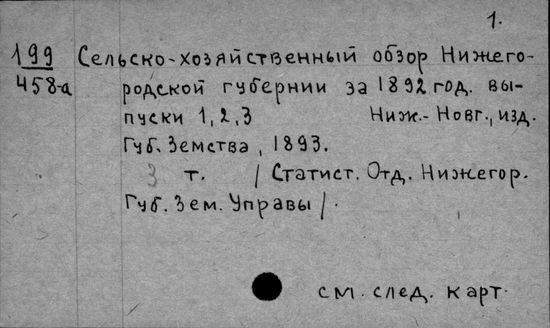 1.
199 Сельско-хозяйственный обзор Нижего-
458-а родской губернии за 1892 год. вы-
пуски 1, 2, 3 Ниж.-Новг., изд.
Губ. Земства, 1893.
3 т. / Статист. Отд. Нижегор.
Губ. Зем. Управы /.
см. след. карт.